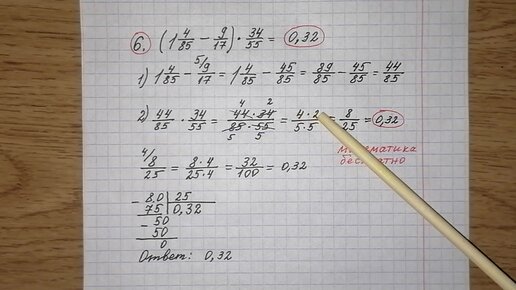 6. (1 4/85 − 9/17) · 34/55 = 0,32
1) 1 4/85 − 5/ 9/17 = 1 4/85 − 45/85 = 89/85 − 45/85 = 44/85
2) 44/85 · 34/55 = 44 · 34 / 85 · 55 = 4 · 2 / 5 · 5 = 8/25 = 0,32
4 2
5 5
математика
бесплатно
4/ 8/25 = 8 · 4 / 25 · 4 = 32/100 = 0,32
− 8,0 | 25
75 | 0,32
− 50
50
0
Ответ: 0,32